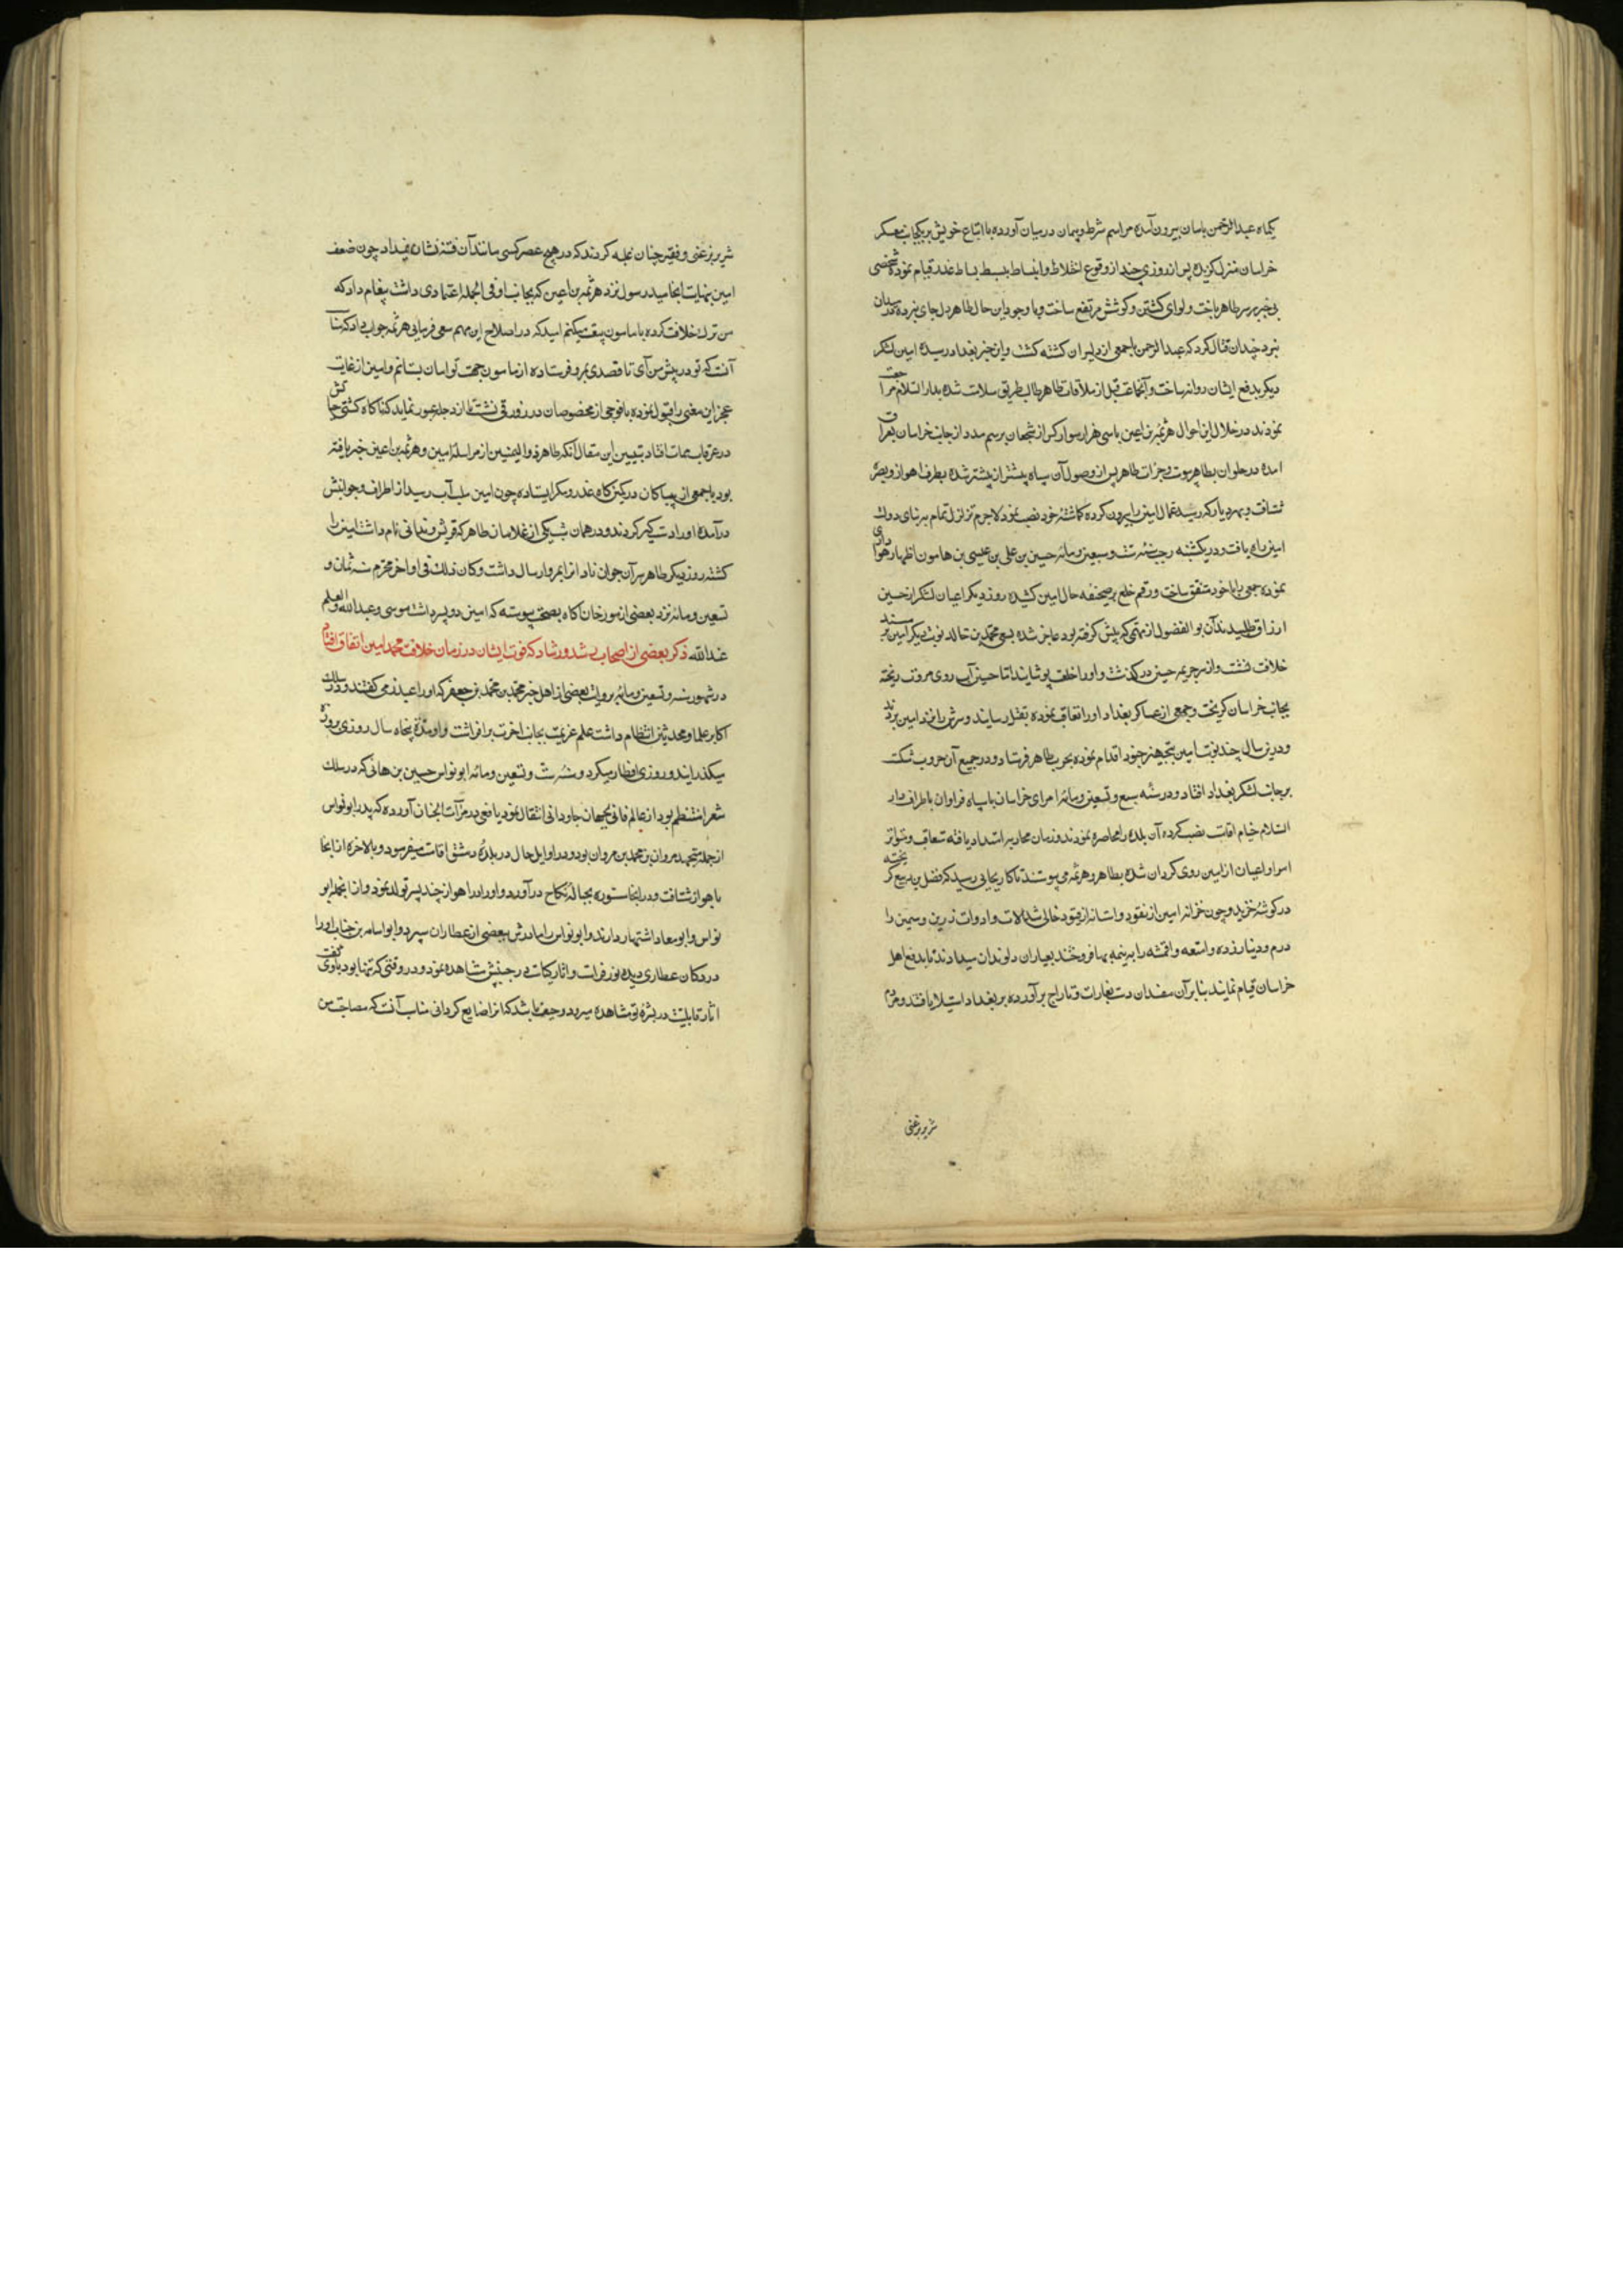 یکماه عبدالرحمن بامان بیرون آمده مراسم شرط و پیمان درمیان آورده با اتباع خویش بریکجانب معسکر
خراسان منزل کزیده پس از روزی چند از وقوع اختلاط و انبساط ببسط بساط غدر قیام نموده شخصی
بی خبر بر سر طاهر تاخت و لوای کشتن و کوشش مرتفع ساخت و باوجود این حال طاهر دل جای نبرده میدان
نبرد چندان قتال کرد که عبدالرحمن با جمعی از دلیران کشته کشت و این خبر ببغداد رسیده امین لشکر
دیکر بدفع ایشان روانه ساخت و آنجماعت قبل از ملاقات طاهر طالب طریق سلامت شده بدار السلام مراجعت
نمودند در خلال این احوال هرثمه بن اعین با سی هزار سوار کزار شجعان برسم مدد از جانب خراسان بعراق
آمده در حلوان بطاهر پیوست و جرات طاهر پس از وصول آن سپاه بیشتر از پیشتر شده بطرف اهواز و بصره
شتافت و بهر دیار که رسید عمال امین را بیرون کرده کماشته خود نصب نمود لاجرم تزلزل تمام ببنای دولت
امین راه یافت و در یکشنبه رجب سنه ست و تسعین و مائه حسین بن علی بن عیسی بن هامون اظهار هواداری
نموده جمعی را با خود متفق ساخت و رقم خلع بر صحیفه حال امین کشیده روز دیکر اعیان لشکر از حسین
ارزاق طلبیدند آن بوالفضول از مهمی که پیش کرفته بود عاجز شده بسعی محمد بن خالد نوبت دیکر امین بر مسند
خلافت نشست و از سر جریمه حسین درکذشت و او را خلعت پوشانید اما حسین آب روی مروت ریخته
بجانب خراسان کریخت و جمعی از عساکر بغداد او را تعاقب نموده بقتل رسانیدند و سرش را نزد امین بردند
و درین سال چند نوبت امین بتجهیز جنود اقدام نموده بحرب طاهر فرستاد و در جمیع آن حروب شکست
بر جانب لشکر بغداد افتاد و در سنه سبع و تسعین و مائه امرای خراسان با سپاه فراوان باطراف دار
السلام خیام اقامت نصب کرده آن بلده را محاصره نمودند و زمان محاربه امتداد یافته متعاقب و متواتر
امرا و اعیان از امین روی کردان شده بطاهر و هرثمه می پیوستند تا کار بجایی رسید که فضل بن ربیع کریخته
در کوشه خزید و چون خزانه امین از نقود و امتعه خالی شد آلات و ادوات زرین و سیمین را
درم و دینار زده و امتعه و اقمشه را به نیمه بها فروختند بعیاران و لوندان میدادند تا بدفع اهل
خراسان قیام نمایند بنابر آن مفسدان دست بغارات و تاراج برآورده بر بغداد استیلا یافتند و مردم
شریر بر غنی
شریر بر غنی و فقیر چنان غلبه کردند که در هیچ عصر کسی مانند آن فتنه نشان نمیداد چون ضعف
امین بنهایت انجامید رسول نزد هرثمه بن اعین که بجانب او فی الجمله اعتمادی داشت پیغام داد که
من ترک خلافت کرده با مامون بیعت میکنم امید که در اصلاح این مهم سعی فرمایی هرثمه جواب داد که مناسب
آنست که تو در پیش من آی تا قصدی بمرو فرستاده از مامون جهت تو امان بستانم و امین از غایت
عجز این معنی را قبول نموده با فوجی از مخصوصان در زورقی نشست تا از دجله عبور نماید که ناکاه کشتی حیاتش
در غرقاب ممات افتاد تبیین این مقال آنکه طاهر ذوالیمینین از مراسله امین و هرثمه بن اعین خبر یافته
بود با جمعی از بیباکان در کمین کاه غدر و مکر ایستاده چون امین بلب آب رسید از اطراف و جوانبش
درآمده او را دستکیر کردند و در همان شب یکی از غلامان طاهر که قریش دندانی نام داشت امین را
کشته روز دیکر طاهر سر آن جوان نادان را بمرو ارسال داشت و کان ذلک فی اواخر محرم سنه ثمان و
تسعین و مائه نزد بعضی از مورخان آکاه بصحت پیوسته که امین دو پسر داشت موسی و عبدالله و العلم
عند الله ذکر بعضی از اصحاب رشد و رشاد که فوت ایشان در زمان خلافت محمد امین اتفاق افتاد
در شهور سنه و تسعین و مائه بروایت بعضی از اهل خبر محمد بن محمد بن جعفر که او را عیدنر می کفتند و در سلک
اکابر علما و محدثین انتظام داشت علم عزیمت بجانب آخرت برافراشت و او مدة پنجاه سال روزی بروزه
میکذرانید و روزی افطار میکرد و سنه ست و تسعین و مائه ابو نواس حسین بن هانی که در سلک
شعرا منتظم بود از عالم فانی بجهان جاودانی انتقال نمود یافعی در مرآت الجنان آورده که پدر ابو نواس
از جمله متجنده مروان بن محمد بن مروان بود و در اوایل حال در بلده دمشق اقامت میفرمود و بالاخره از انجا
باهواز شتافت و در انجا ستوره بحباله نکاح درآورد و او را در اهواز چند پسر تولد نمود و از انجمله ابو
نواس و ابو معاد اشتهار دارند و ابو نواس را مادرش ببعضی از عطاران سپرد و ابو اسامه بن حباب او را
در دکان عطاری دیده نور فراست و اثار کیاست در جبینش مشاهده نمود و در وقتی که تنها بود باوی کفت
اثار قابلیت در بشره تو مشاهده میرود و حیف باشد که انرا ضایع کردانی مناسب آنست که مصاحبت من